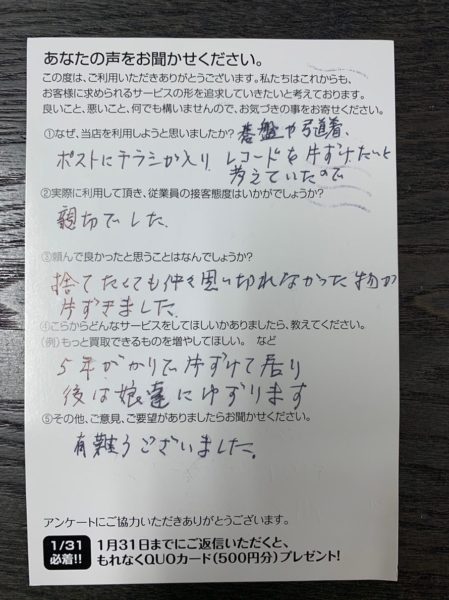 あなたの声をお聞かせください。
この度は、ご利用いただきありがとうございます。私たちはこれからも、
お客様に求められるサービスの形を追求していきたいと考えております。
良いこと、悪いこと、何でも構いませんので、お気づきの事をお寄せください。
①なぜ、当店を利用しようと思いましたか?
碁盤や弓道着、
ポストにチラシが入り レコードを片ずけたいと
考えていたので
②実際に利用して頂き、従業員の接客態度はいかがでしょうか?
親切でした、
③頼んで良かったと思うことはなんでしょうか?
捨てたくても仲々思い切れなかった物が
片ずきました、
④こらからどんなサービスをしてほしいかありましたら、教えてください。
(例)もっと買取できるものを増やしてほしい。 など
5年がかりで片ずけて居り
後は娘達にゆずります
⑤その他、ご意見、ご要望がありましたらお聞かせください。
有難うございました。
アンケートにご協力いただきありがとうございます。
1/31
必着!!
1月31日までにご返信いただくと、
もれなくQUOカード(500円分)プレゼント!